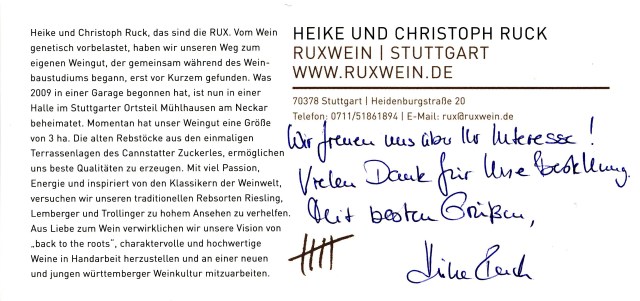 Heike und Christoph Ruck, das sind die RUX. Vom Wein
genetisch vorbelastet, haben wir unseren Weg zum
eigenen Weingut, der gemeinsam während des Wein-
baustudiums begann, erst vor Kurzem gefunden. Was
2009 in einer Garage begonnen hat, ist nun in einer
Halle im Stuttgarter Ortsteil Mühlhausen am Neckar
beheimatet. Momentan hat unser Weingut eine Größe
von 3 ha. Die alten Rebstöcke aus den einmaligen
Terrassenlagen des Cannstatter Zuckerles, ermöglichen
uns beste Qualitäten zu erzeugen. Mit viel Passion,
Energie und inspiriert von den Klassikern der Weinwelt,
versuchen wir unseren traditionellen Rebsorten Riesling,
Lemberger und Trollinger zu hohem Ansehen zu verhelfen.
Aus Liebe zum Wein verwirklichen wir unsere Vision von
„back to the roots“, charaktervolle und hochwertige
Weine in Handarbeit herzustellen und an einer neuen
und jungen württemberger Weinkultur mitzuarbeiten.
HEIKE UND CHRISTOPH RUCK
RUXWEIN | STUTTGART
WWW.RUXWEIN.DE
70378 Stuttgart | Heidenburgstraße 20
Telefon: 0711/51861894 | E-Mail: rux@ruxwein.de
Wir freuen uns über Ihr Interesse!
Vielen Dank für Ihre Bestellung.
Mit besten Grüßen,
Heike Ruck